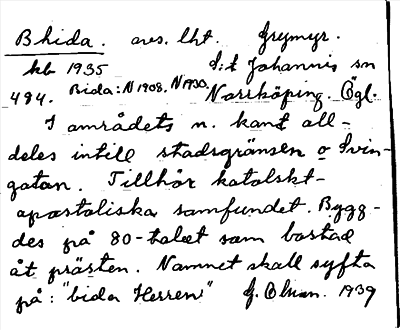 Bhida. avs. lht. Greymyr.
kb 1935 S:t Johannis sn
494. Bida: N 1908. N 1930. Norrköping. Ögl.
I områdets n. kant all-
deles intill stadsgränsen o Svin-
gatan. Tillhör katolskt-
apostoliska samfundet. Bygg-
des på 80-talet som bostad
åt prästen. Namnet skall syfta
på: "bida Herren" J. Olson. 1939